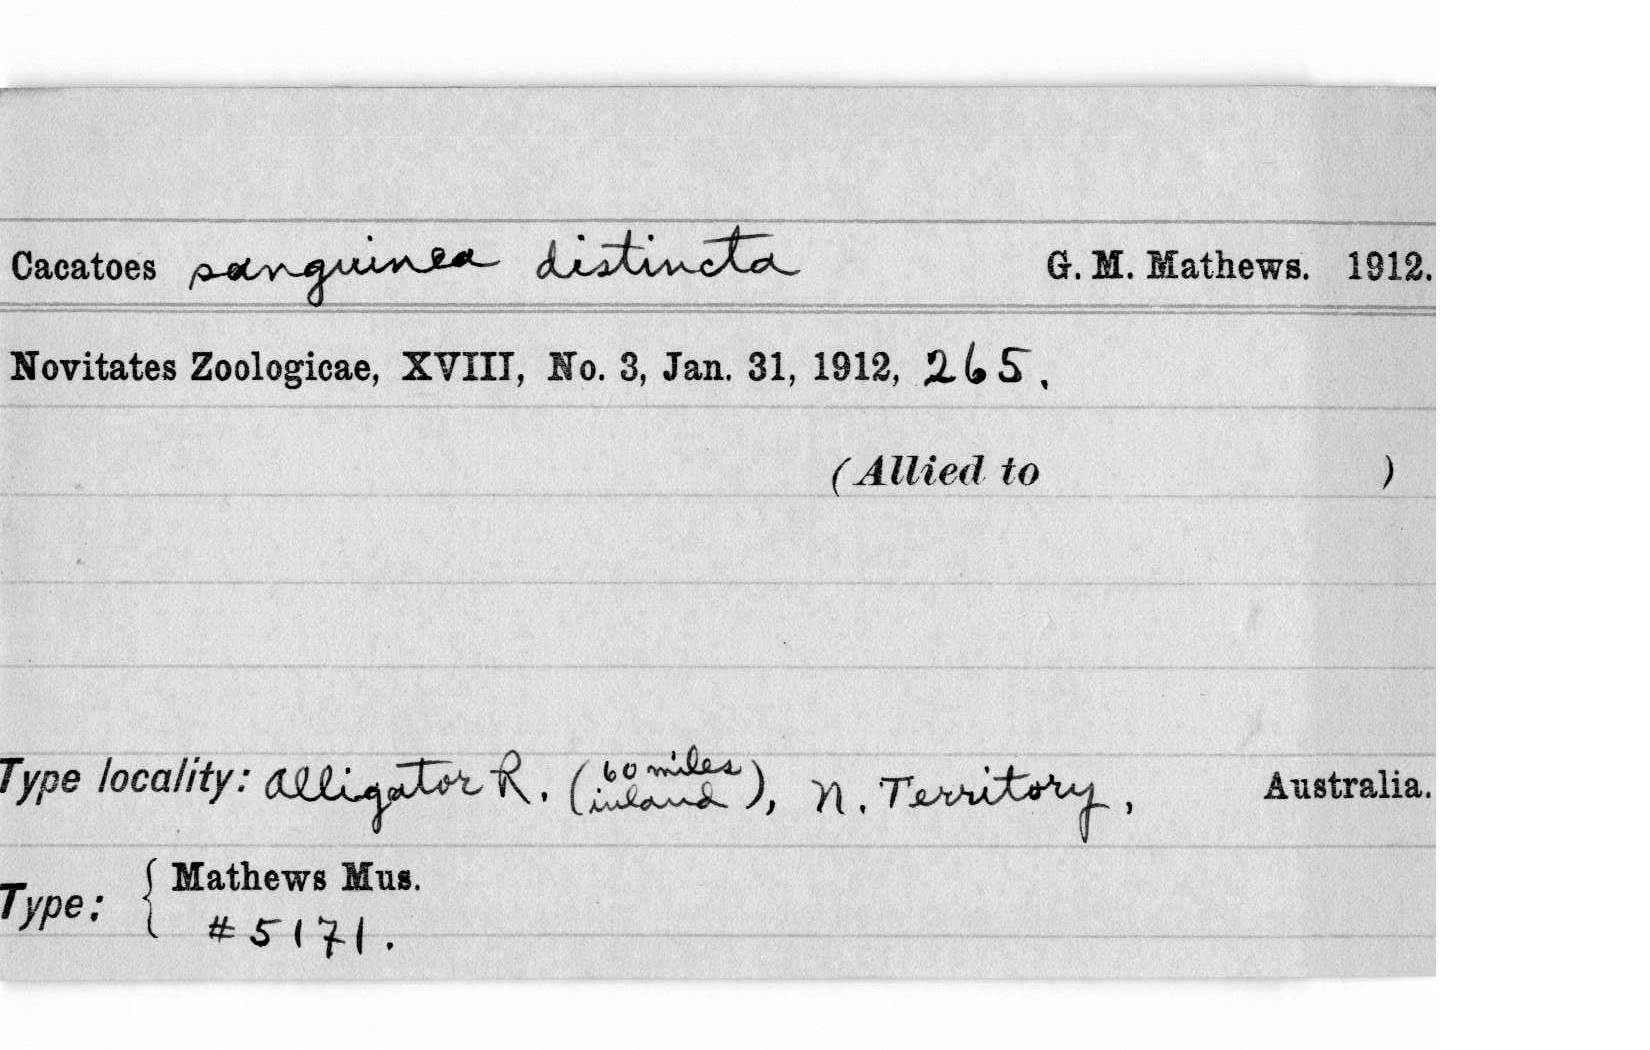 Cacatoes sanguinea distincta G. M. Mathews. 1912.
Novitates Zoologicae, XVIII, No. 3, Jan. 31, 1912, 265.
(Allied to )
Type locality: Alligator R. (60 miles inland), N. Territory, Australia.
Type: { Mathews Mus.
#5171.